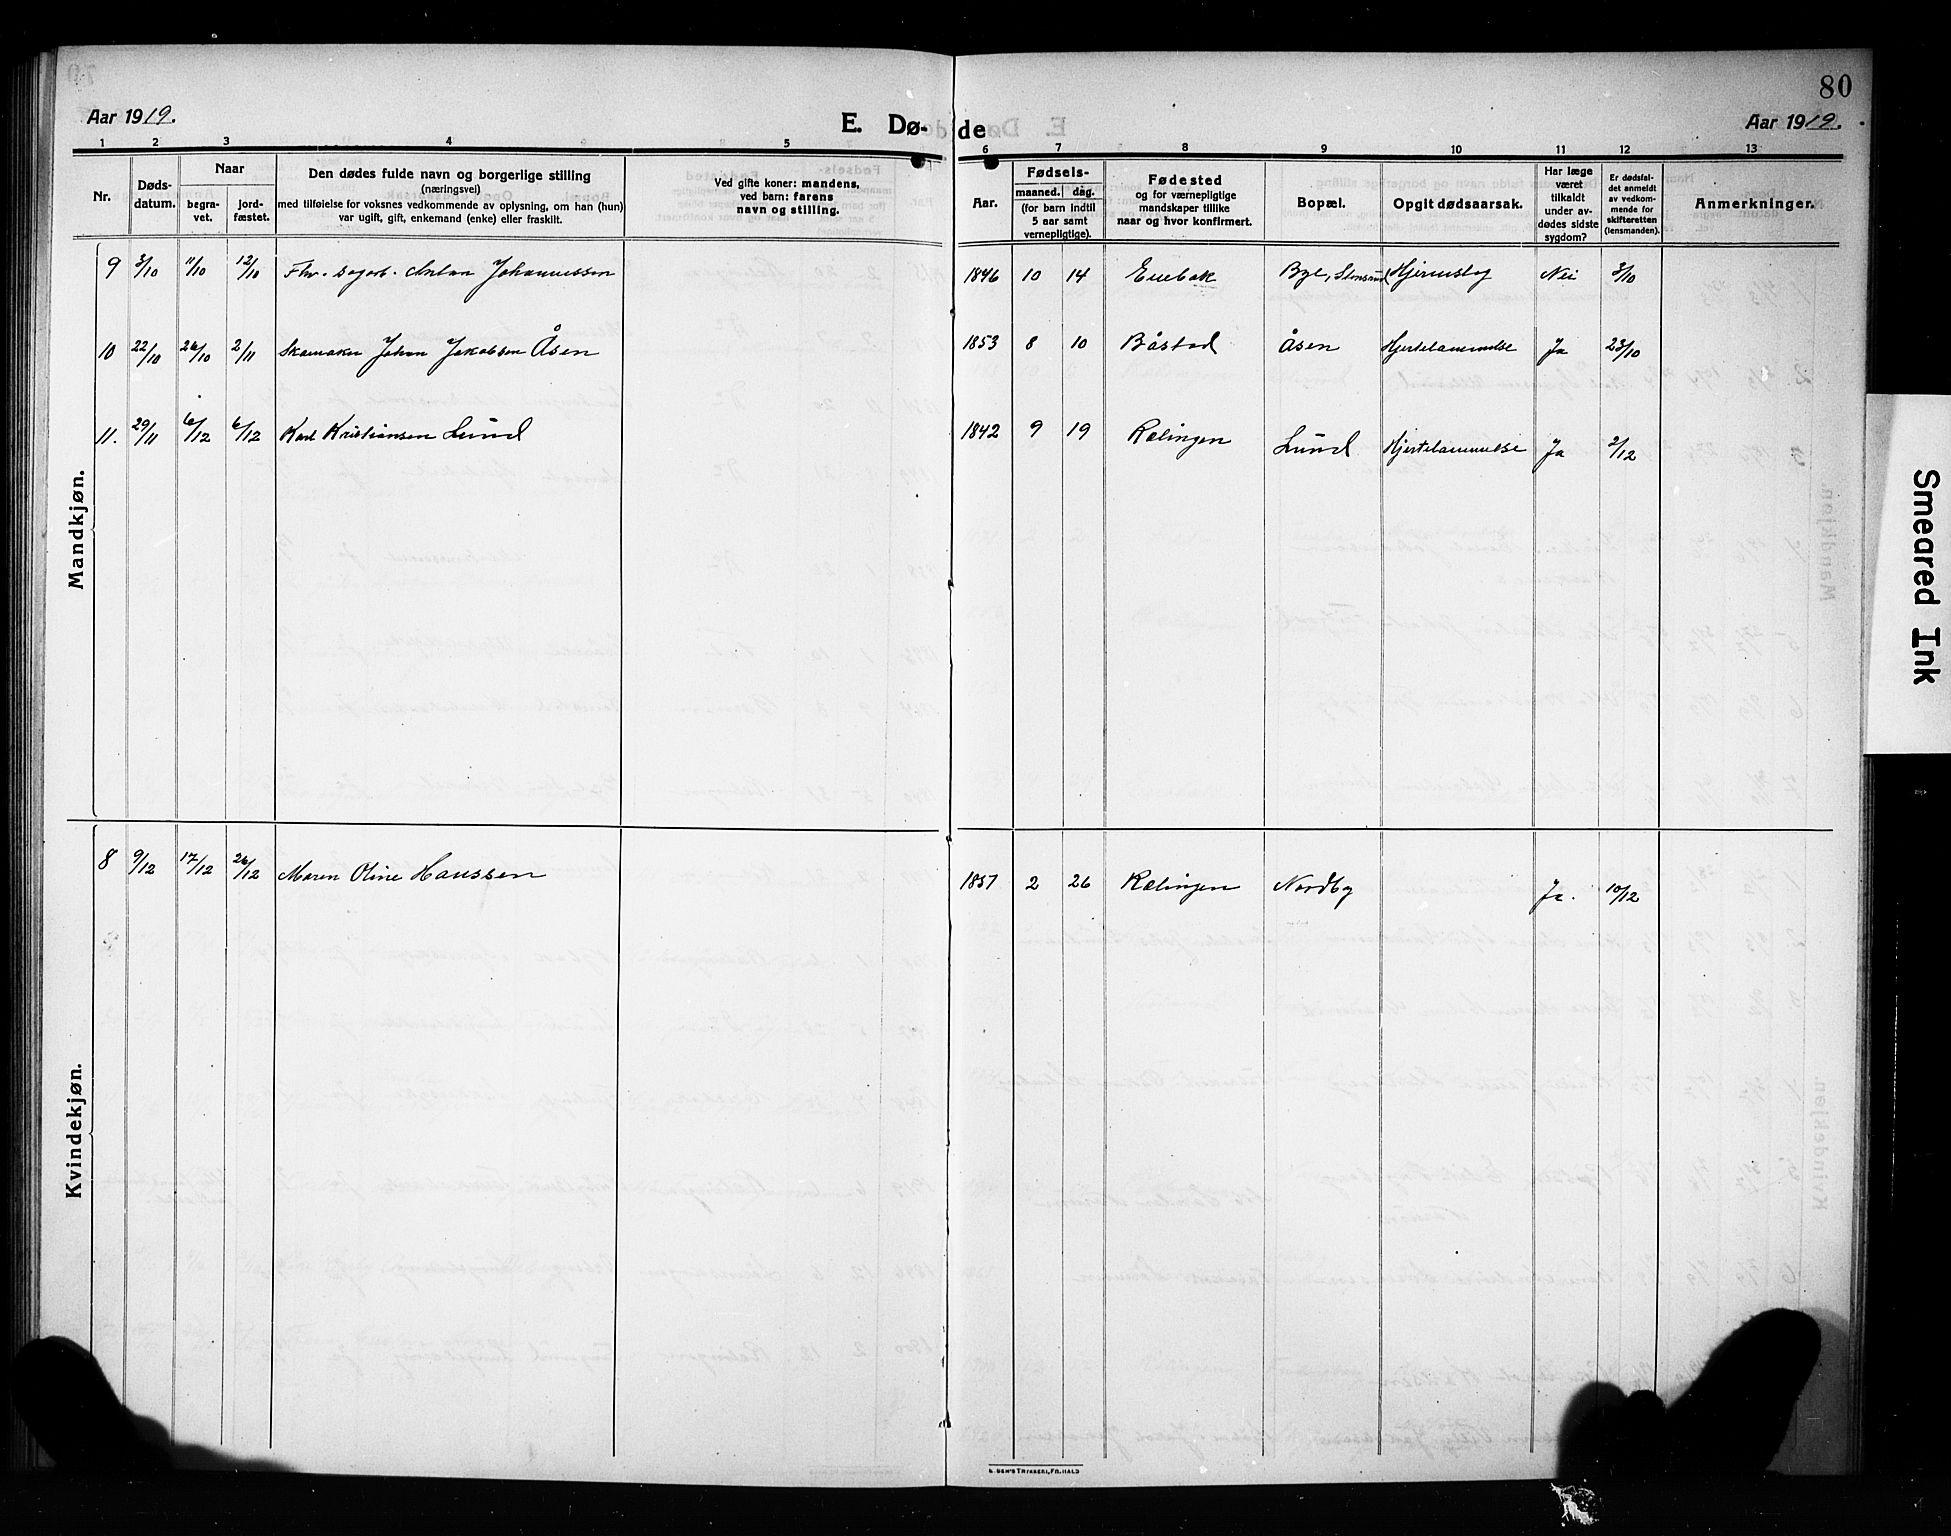 80
Aar 1919.
E. Dø-
de
Aar 1919.
1 2 3 4 5 6 7 8 9 10 11 12 13
Nr.
Døds-
datum.
Naar
begra-
vet.
jord-
fæstet.
Den dødes fulde navn og borgerlige stilling
(næringsvei)
med tilføielse for voksnes vedkommende av oplysning, om han (hun)
var ugift, gift, enkemand (enke) eller fraskilt.
Ved gifte koner: mandens,
ved barn: farens
navn og stilling.
Aar.
Fødsels-
maaned. dag.
(for barn indtil
5 aar samt
vernepligtige).
Fødested
og for værnepligtige
mandskaper tillike
naar og hvor konfirmert.
Bopæl.
Opgit dødsaarsak.
Har læge
været
tilkaldt
under av-
dødes sidste
sygdom?
Er dødsfal-
det anmeldt
av vedkom-
mende for
skifteretten
(lensmanden).
Anmerkninger.
Mandkjøn.
9 3/10 11/10 12/10 Fhv. dagarb. Anton Johannessen 1846 10 14 Enebak Bye, Hjerneslag Nei 3/10
10 22/10 26/10 2/11 Skomaker Johan Jakobsen Åsen 1853 8 10 Båstad Åsen Hjertelammelse Ja 23/10
11. 29/11 6/12 6/12 Karl Kristiansen Lund 1842 9 19 Rælingen Lund Hjertelammelse Ja 2/12
Kvindekjøn.
8 9/12 17/12 26/12 Maren Oline Hanssen 1857 2 26 Rælingen Nordby Ja. 10/12
Smeared Ink